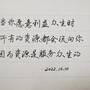 当你愿意利益众生时
所有的资源都会流向你
因为资源是服务众生的
2022.10.10